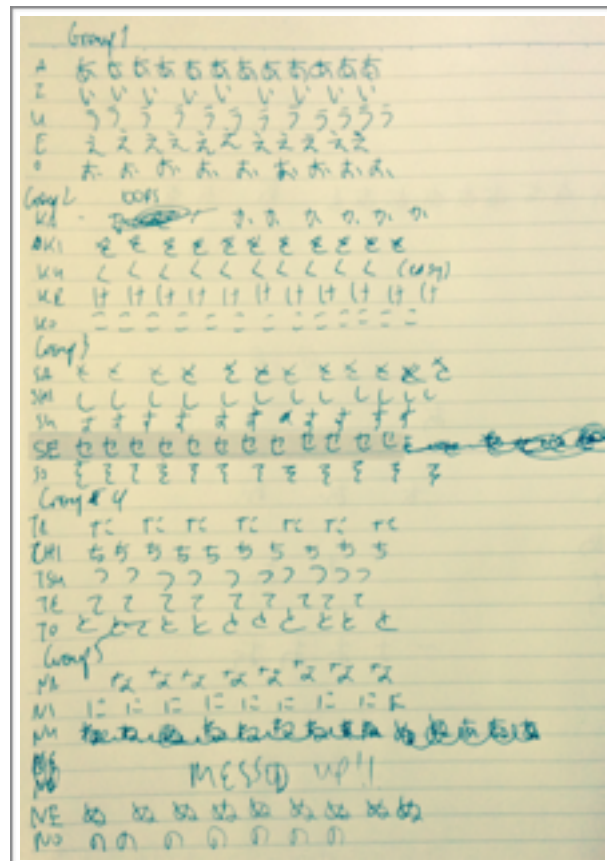 Group 1
A あ あ あ あ あ あ あ あ あ あ あ
I い い い い い い い い い
U う う う う う う う う う う う
E え え え え え え え え え え
O お お お お お お お お
Group 2 OOPS
KA か か か か か か
KI き き き き き き き き き き
KU く く く く く く く く く く (easy)
KE け け け け け け け け け け
KO こ こ こ こ こ こ こ こ こ こ こ
Group 3
SA さ さ さ さ さ さ さ さ さ さ さ さ
SHI し し し し し し し し し し し し
SU す す す す す す す す す
SE せ せ せ せ せ せ せ せ せ せ せ せ
SO そ そ そ そ そ そ そ そ そ そ そ そ
Group 4
た た た た た た
CHI ち ち ち ち ち ち ち ち ち ち
TSU つ つ つ つ つ つ つ つ つ つ
TE て て て て て て て て て
TO と と て と と と と と と と と
Group 5
NA な な な な な な な な
NI に に に に に に に に に
NU
MESSED UP!!
NE ぬ ぬ ぬ ぬ ぬ ぬ ぬ ぬ ぬ
NO の の の の の の の